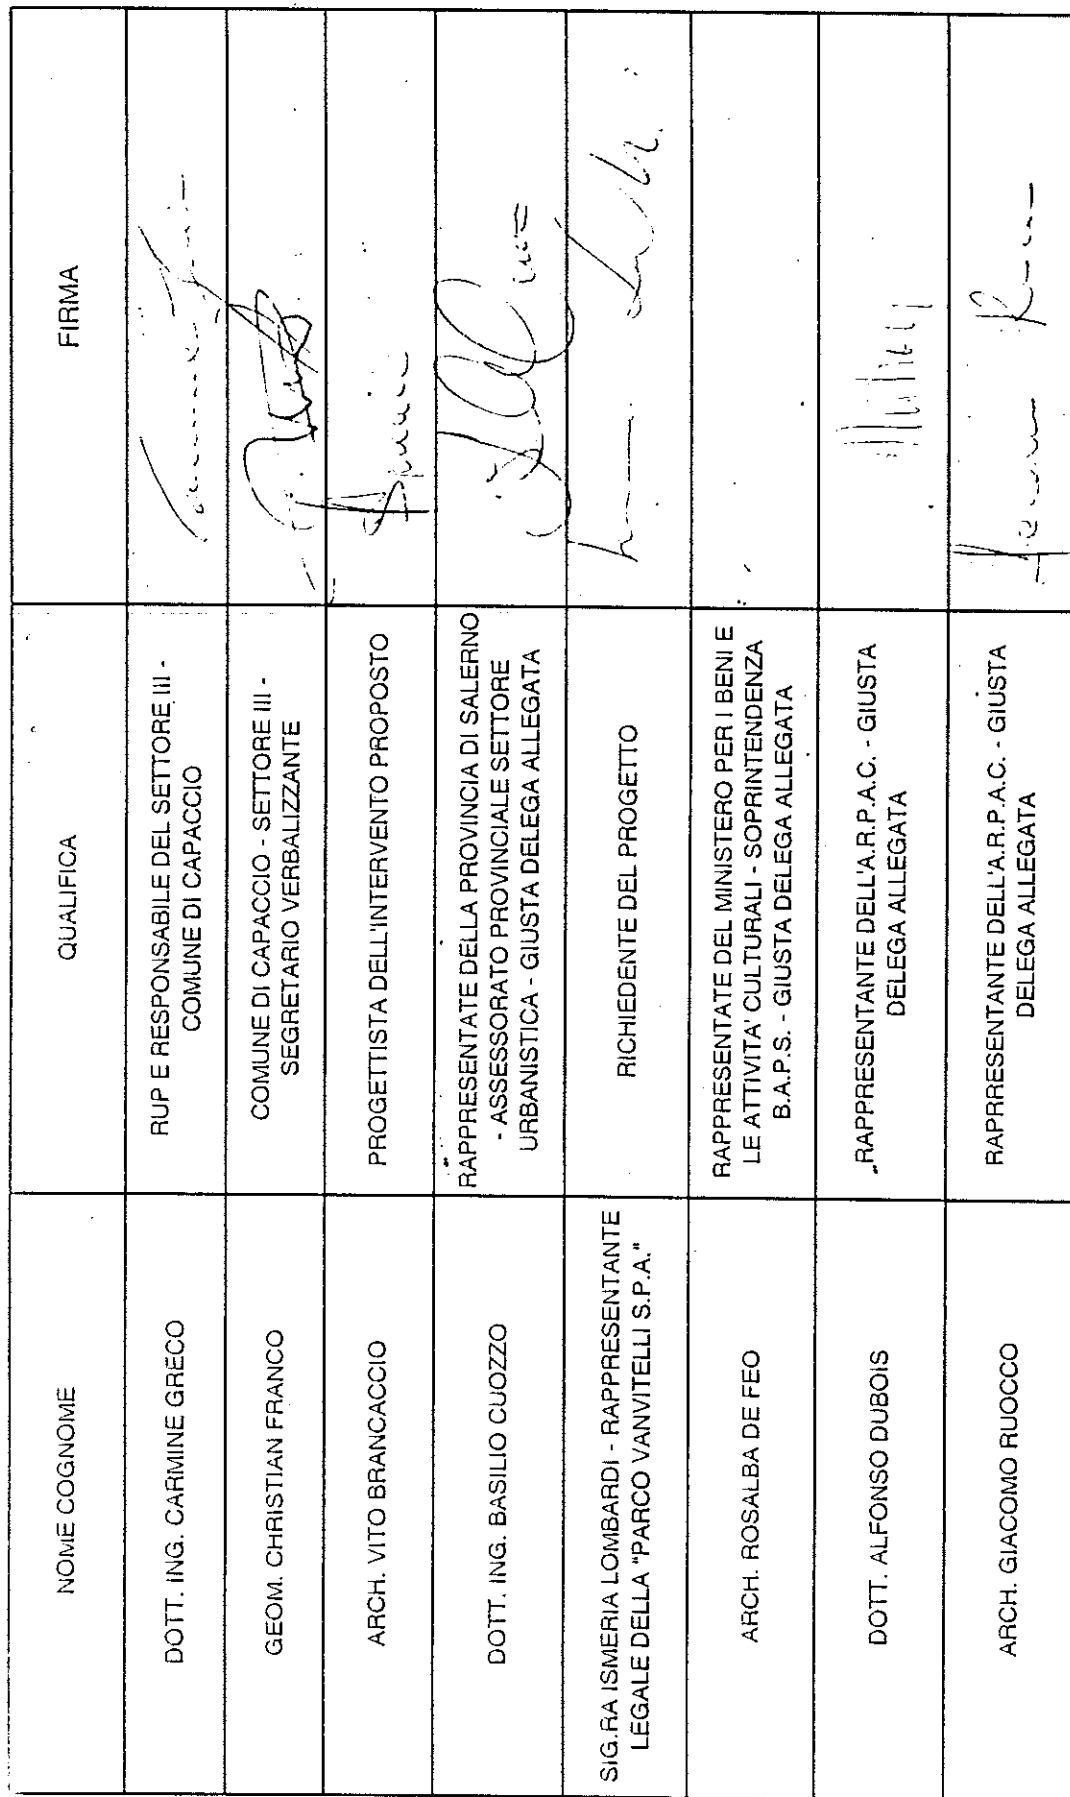 NOME COGNOME
QUALIFICA
FIRMA
DOTT. ING. CARMINE GRECO
RUP E RESPONSABILE DEL SETTORE III -
COMUNE DI CAPACCIO
GEOM. CHRISTIAN FRANCO
COMUNE DI CAPACCIO - SETTORE III -
SEGRETARIO VERBALIZZANTE
ARCH. VITO BRANCACCIO
PROGETTISTA DELL'INTERVENTO PROPOSTO
DOTT. ING. BASILIO CUOZZO
RAPPRESENTATE DELLA PROVINCIA DI SALERNO
- ASSESSORATO PROVINCIALE SETTORE
URBANISTICA - GIUSTA DELEGA ALLEGATA
SIG.RA ISMERIA LOMBARDI - RAPPRESENTANTE
LEGALE DELLA "PARCO VANVITELLI S.P.A."
RICHIEDENTE DEL PROGETTO
ARCH. ROSALBA DE FEO
RAPPRESENTATE DEL MINISTERO PER I BENI E
LE ATTIVITA' CULTURALI - SOPRINTENDENZA
B.A.P.S. - GIUSTA DELEGA ALLEGATA
DOTT. ALFONSO DUBOIS
RAPPRESENTANTE DELL'A.R.P.A.C. - GIUSTA
DELEGA ALLEGATA
ARCH. GIACOMO RUOCCO
RAPRRESENTANTE DELL'A.R.P.A.C. - GIUSTA
DELEGA ALLEGATA